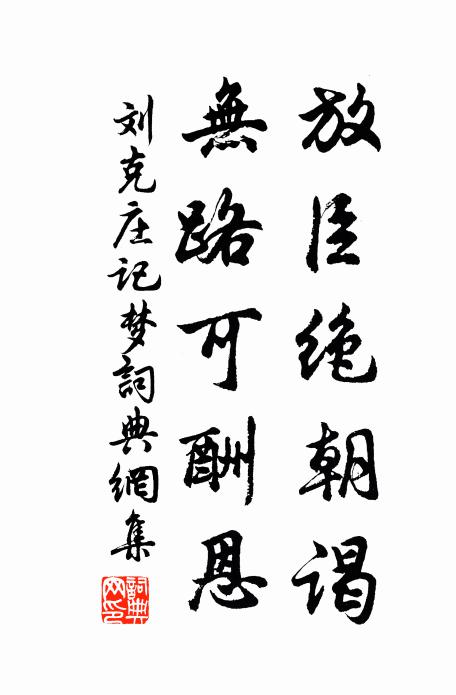 放臣绝朝谒
無路可酬恩
刘克庄记梦詞典網集
詞典網印